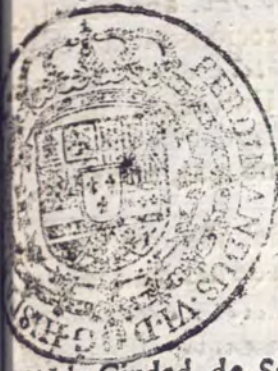 FERDINANDUS·VI·D·G·HISP
Ciudad de S